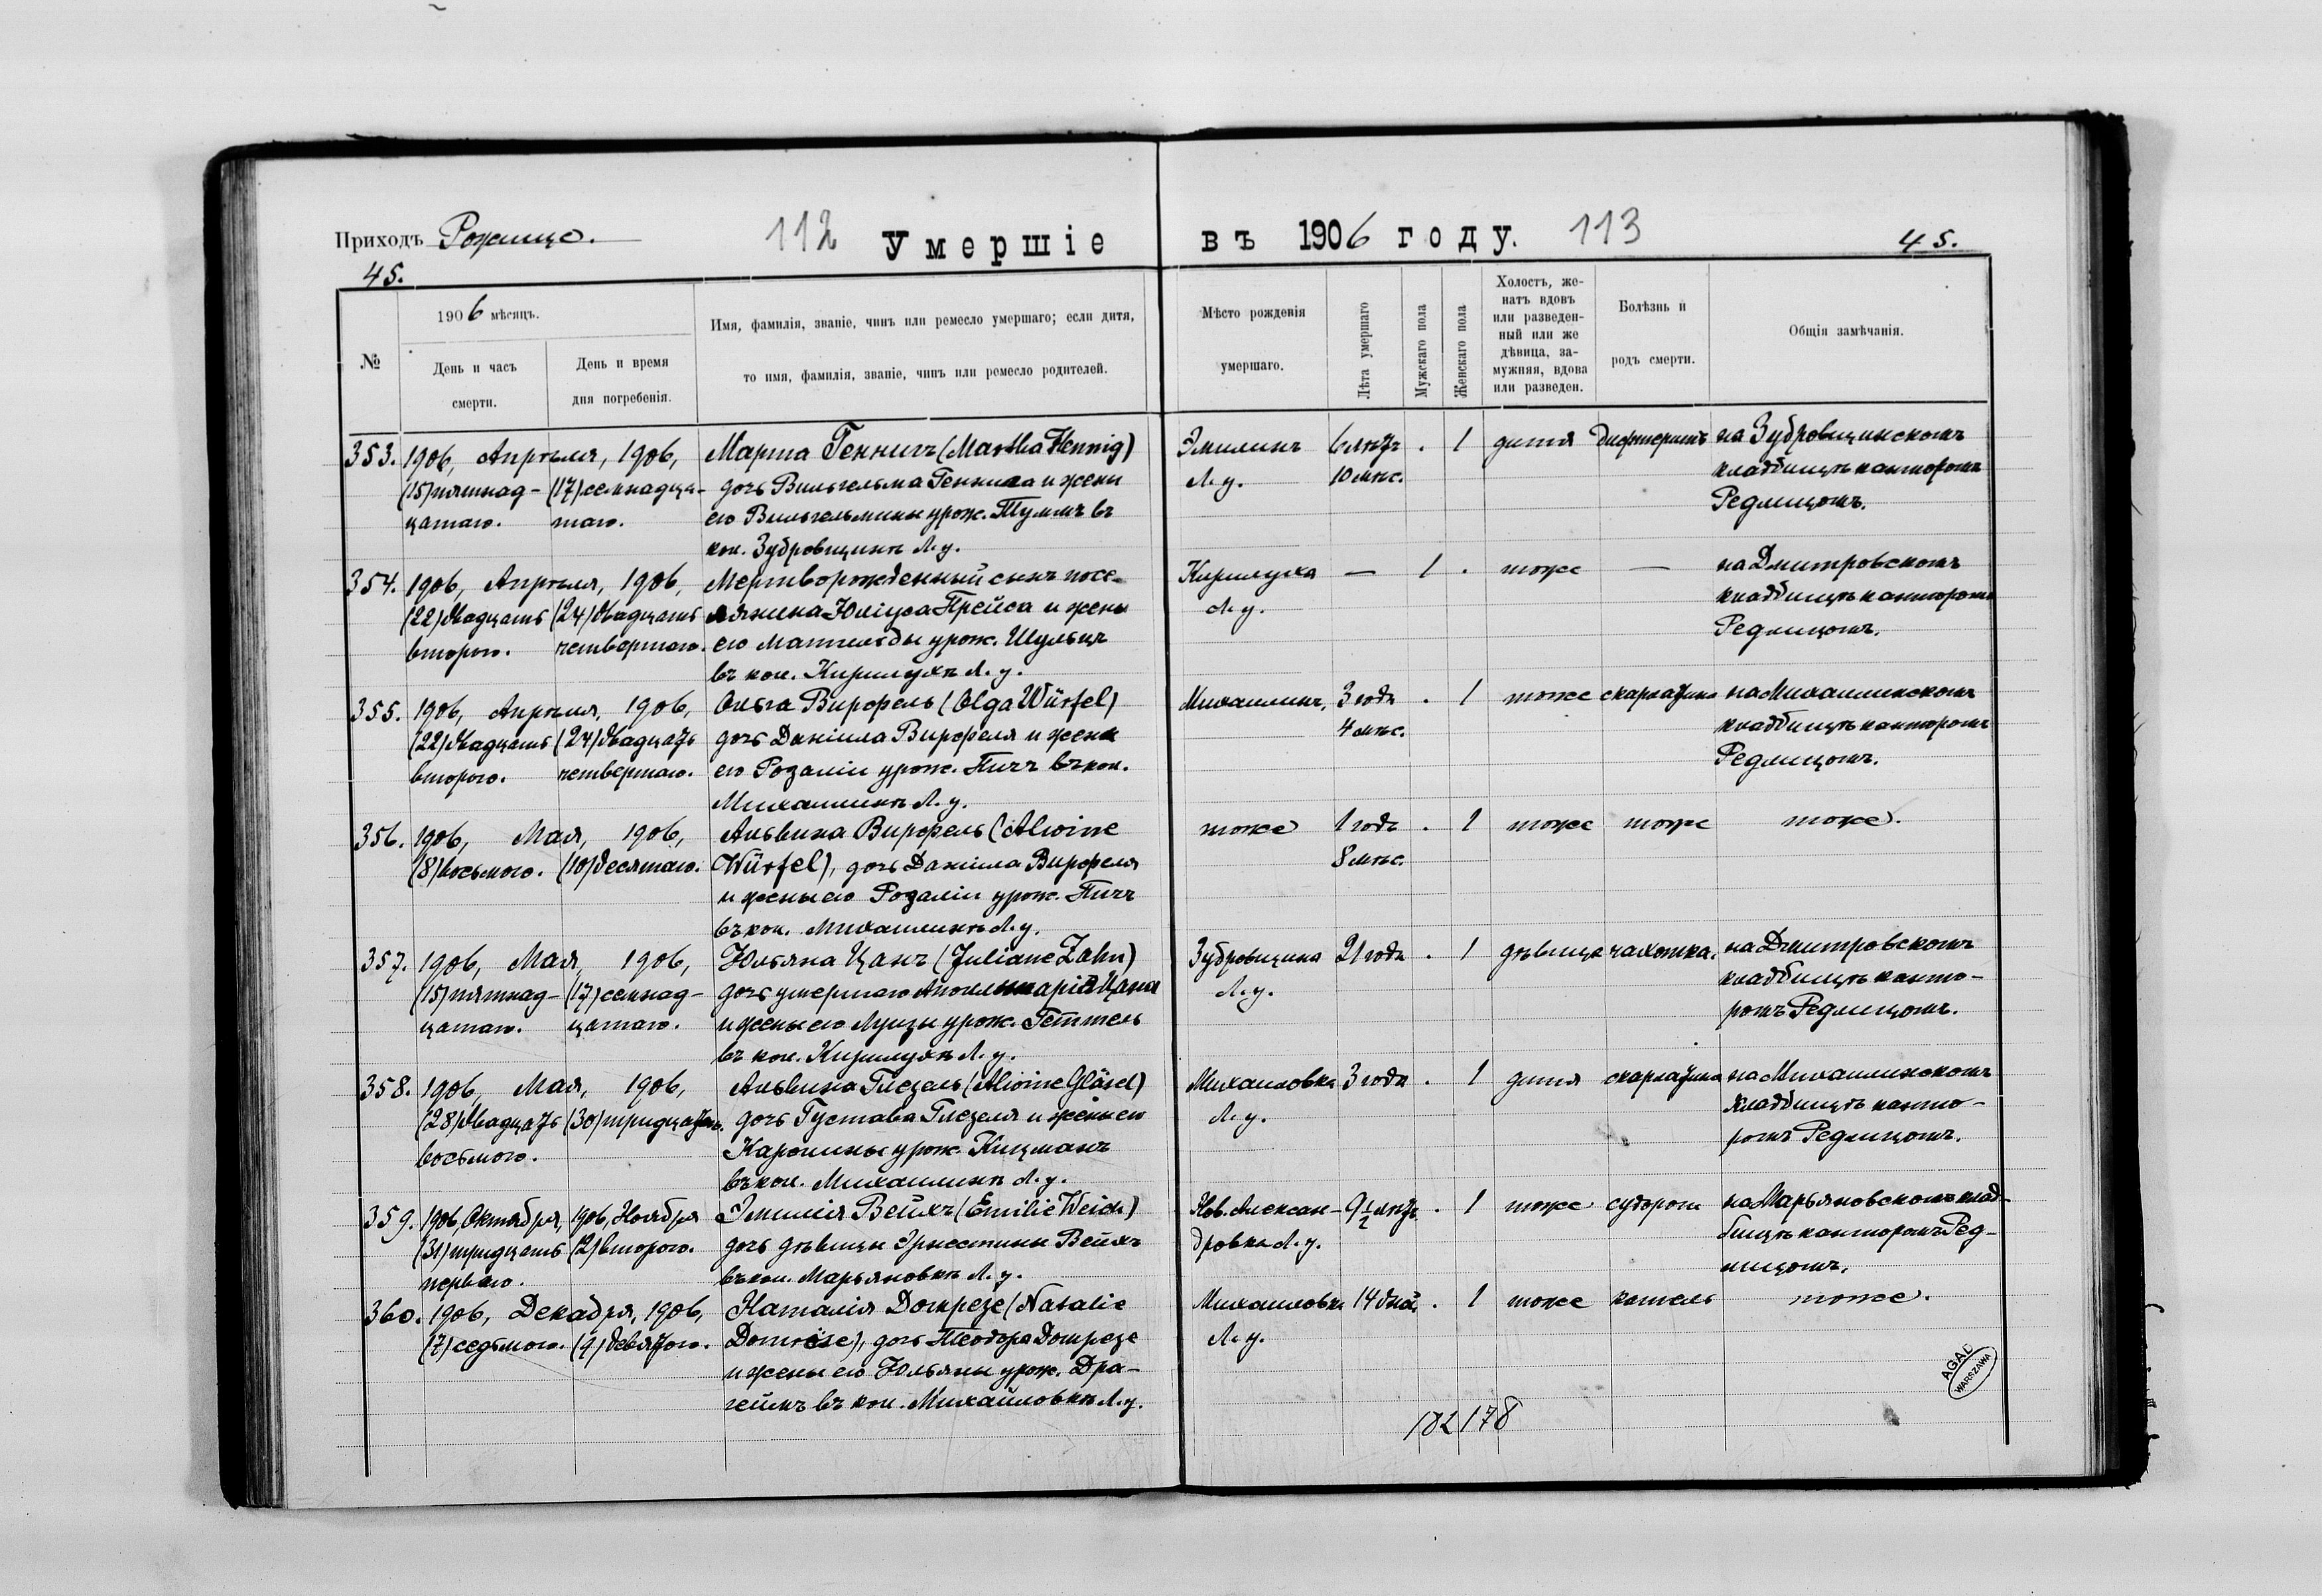 Приходъ Рожище.
112
Умершіе
въ 1906 году.
113
45.
45.
№
1906 мѣсяцъ.
День и часъ
смерти.
День и время
дня погребенія.
Имя, фамилія, званіе, чинъ или ремесло умершаго; если дитя,
то имя, фамилія, званіе, чинъ или ремесло родителей.
Мѣсто рожденія
умершаго.
Лѣта умершаго
Мужскаго пола
Женскаго пола
Холостъ, же-
натъ вдовъ
или разведен-
ный или же
дѣвица, за-
мужняя, вдова
или разведен.
Болѣзнь и
родъ смерти.
Общія замѣчанія.
353. 1906, Апрѣля, 1906, Марта Геннигъ (Martha Hennig) Эмилинъ 6 лѣтъ . 1 дитя дифтеритъ на Зубровщинскомъ
(15) пятнад- (17) семнадца- дочь Вильгельма Геннига и жены Л. у. 10 мѣс. кладбищѣ канторомъ
цатаго. таго. его Вильгельмины урож. Туммъ въ Редлицомъ.
кол. Зубровщинѣ Л. у.
354. 1906, Апрѣля, 1906, Мертворожденный сынъ посе- Кирилуха — 1 . тоже — на Дмитровскомъ
(22) двадцать (24) двадцать лянина Юліуса Прейса и жены Л. у. кладбищѣ канторомъ
второго. четвертаго. его Матильды урож. Шульцъ Редлицомъ.
въ кол. Кирилухѣ Л. у.
355. 1906, Апрѣля, 1906, Ольга Вирфель (Olga Würfel) Михаилинъ, 3 года . 1 тоже скарлатина на Михаилинскомъ
(22) двадцать (24) двадцать дочь Даніила Вирфеля и жены 4 мѣс. кладбищѣ канторомъ
второго. четвертаго. его Розаліи урож. Пичъ въ кол. Редлицомъ.
Михаилинѣ Л. у.
356. 1906, Мая, 1906, Альвина Вирфель (Alwine тоже 1 годъ . 1 тоже тоже тоже.
(8) восьмого. (10) десятаго. Würfel), дочь Даніила Вирфеля 8 мѣс.
и жены его Розаліи урож. Пичъ
въ кол. Михаилинѣ Л. у.
357. 1906, Мая, 1906, Юльяна Цанъ (Juliane Zahn) Зубровщина 21 года . 1 дѣвица чахотка. на Дмитровскомъ
(15) пятнад- (17) семнад- дочь умершаго Цана Л. у. кладбищѣ канто-
цатаго. цатаго. и жены его Луизы урож. Геттель ромъ Редлицомъ.
въ кол. Кирилухѣ Л. у.
358. 1906, Мая, 1906, Альвина Глезель (Alwine Gläsel) Михаиловка 3 года . 1 дитя скарлатина на Михаилинскомъ
(28) двадцать (30) тридцатаго. дочь Густава Глезеля и жены его Л. у. кладбищѣ канто-
восьмого. Каролины урож. Кицманъ ромъ Редлицомъ.
въ кол. Михаилинѣ Л. у.
359. 1906, Октября, 1906, Ноября Эмилія Вейхъ (Emilie Weich) Нов. Алексан- 9½ лѣтъ . 1 тоже судороги на Марьяновскомъклад-
(31) тридцать (2) второго. дочь дѣвицы Эрнестины Вейхъ дровка Л. у. бищѣ канторомъ Ред-
перваго. въ кол. Марьяновкѣ Л. у. лицомъ.
360. 1906, Декабря, 1906, Наталія Домрезе (Natalie Михаиловка 14 дней . 1 тоже кашель тоже.
(7) седьмого. (9) девятого. Domröse), дочь Теодора Домрезе Л. у.
и жены его Юльяны урож. Дра-
геймъ въ кол. Михайловкѣ Л. у.
182 178
AGAD
WARSZAWA